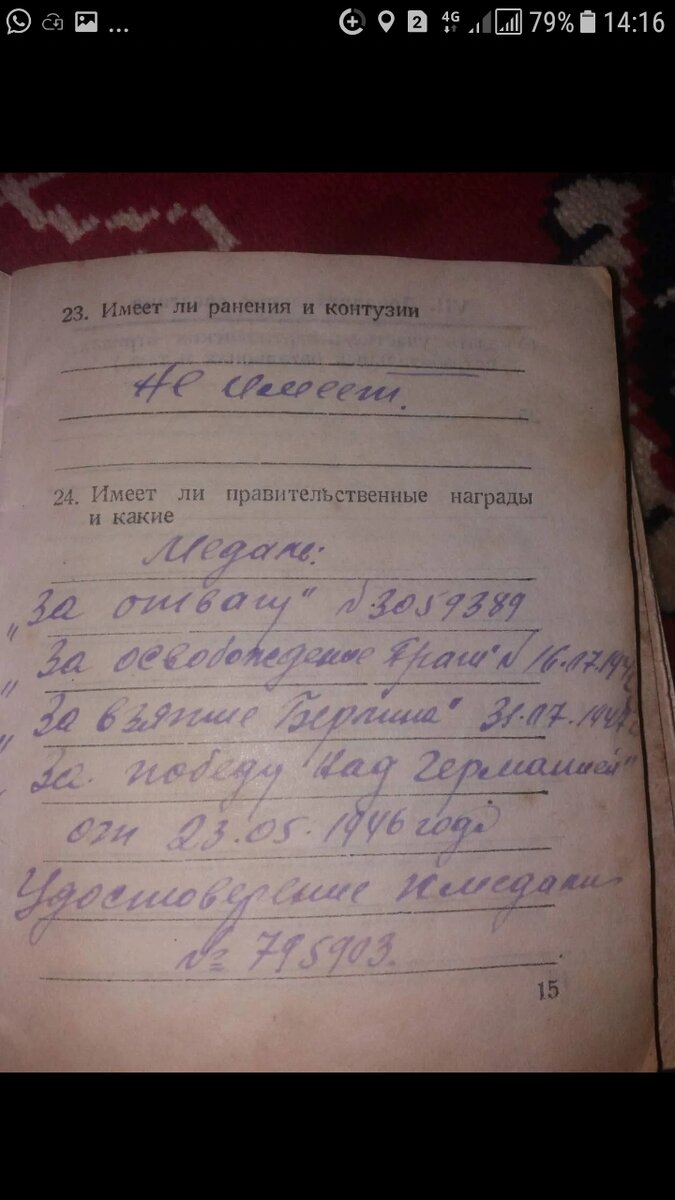 2 4G 79% 14:16
23. Имеет ли ранения и контузии
Не имеет.
24. Имеет ли правительственные награды
и какие
Медаль:
„За отвагу" №3059389
„За освобождение Праги" №
„За взятие Берлина" 31.07.194
„За победу над Германией"
от 23.05.1946 года
Удостоверение к медали
№ 795903.
15